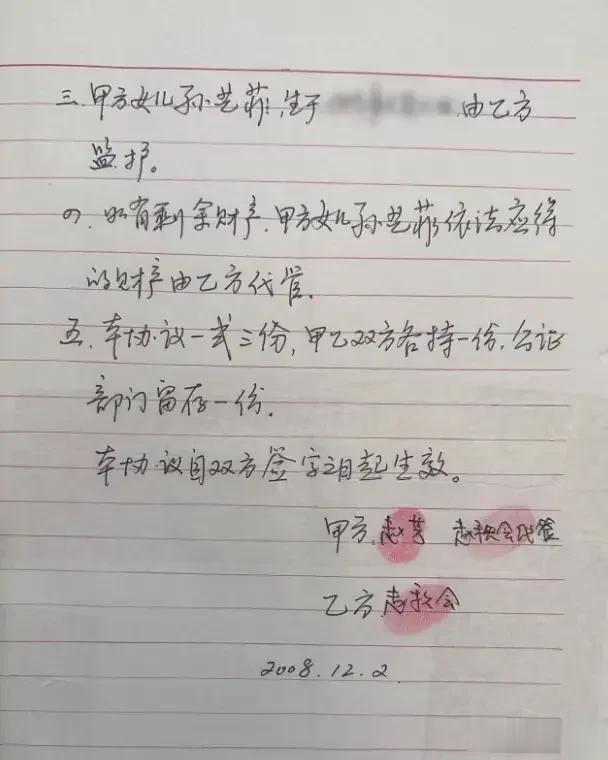 三.甲方女儿孙艺菲,生于 .由乙方
监护。
四.如有剩余财产.甲方女儿孙艺菲依法应得
的财产由乙方代管.
五.本协议一式三份,甲乙双方各持一份.公证
部门留存一份.
本协议自双方签字之日起生效。
甲方.赵芳 赵秋会代签
乙方.赵秋会
2008.12.2.